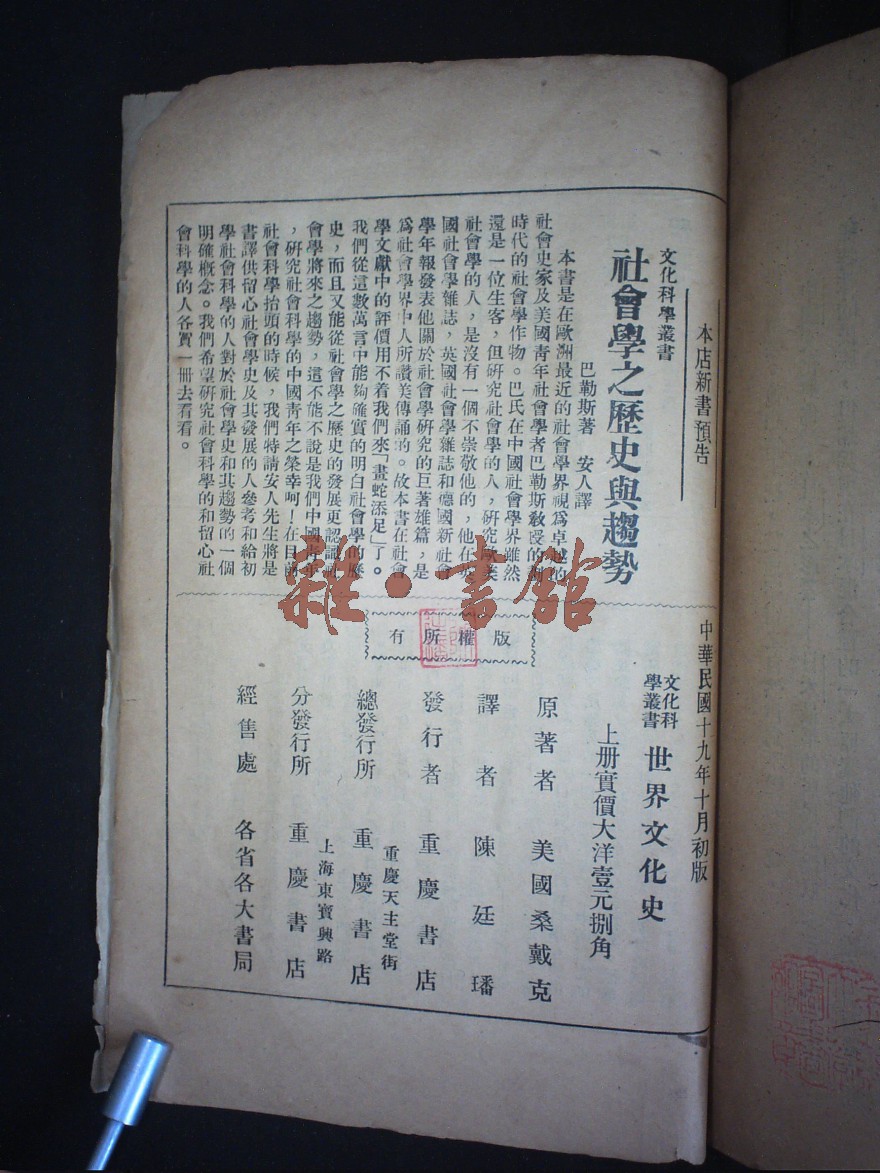 本店新書預告
文化科學叢書
社會學之歷史與趨勢
巴勒斯著　安人譯
本書是在歐洲最近的社會學界視爲卓越的
社會史家及美國青年社會學者巴勒斯敎授的劃
時代的社會學作物。巴氏在中國社會學界雖然
還是一位生客，但研究社會學的人，研究歐美
社會學的人，是沒有一個不崇敬他的，他在美
國社會學雜誌，英國社會學雜誌和德國新社會
學年報發表他關於社會學硏究的巨著雄篇，是
爲社會學界中人所讚美傳誦的。故本書在社會
學文獻中的評價用不着我們來「畫蛇添足」了。
我們從這數萬言中能夠確實的明白社會學的歷
史，而且又能從社會學之歷史的發展更認識社
會學將來之趨勢，這不能不說是我們中國青年
，硏究社會科學的中國靑年之榮幸呵！在目前
社會科學抬頭的時候，我們特請安人先生將是
書譯供留心社會學史及其發展的人參考和給初
學社會科學的人對於社會學史和其趨勢的一個
明確概念。我們希望硏究社會科學的和留心社
會科學的人各買一冊去看看。
雜·書館
版權所有
中華民國十九年十月初版
文化科學叢書　世界文化史
上册實價大洋壹元捌角
原著者　美國桑戴克
譯者　陳廷璠
發行者　重慶書店
重慶天主堂街
總發行所　重慶書店
上海東寶興路
分發行所　重慶書店
經售處　各省各大書局